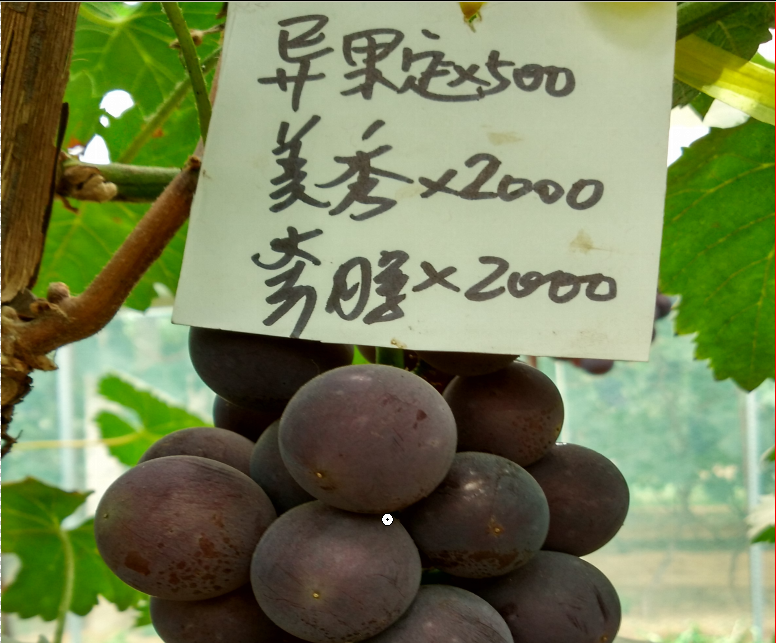 异果定x500
美秀x2000
秀月x2000